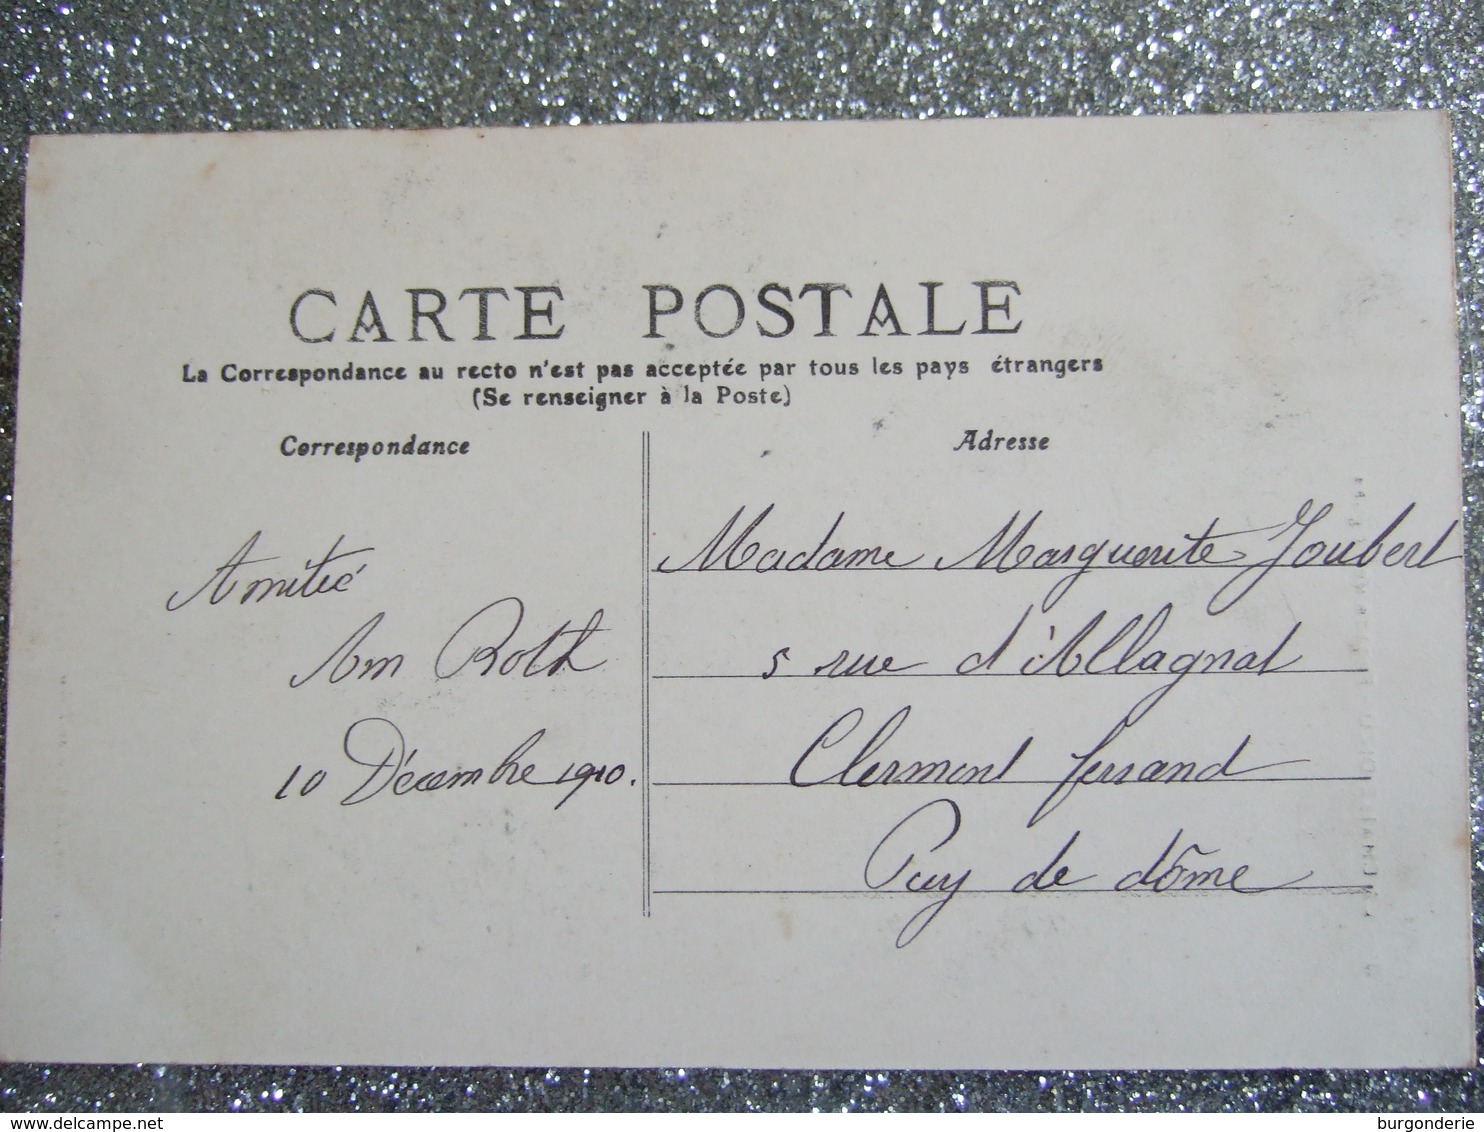 CARTE POSTALE
La Correspondance au recto n'est pas acceptée par tous les pays étrangers
(Se renseigner à la Poste)
Correspondance
Adresse
Amitié
Am Roth
10 Décembre 1910.
Madame Marguerite Joubert
5 rue d'Allagnat
Clermont ferrand
Puy de dôme
www.delcampe.net
burgonderie